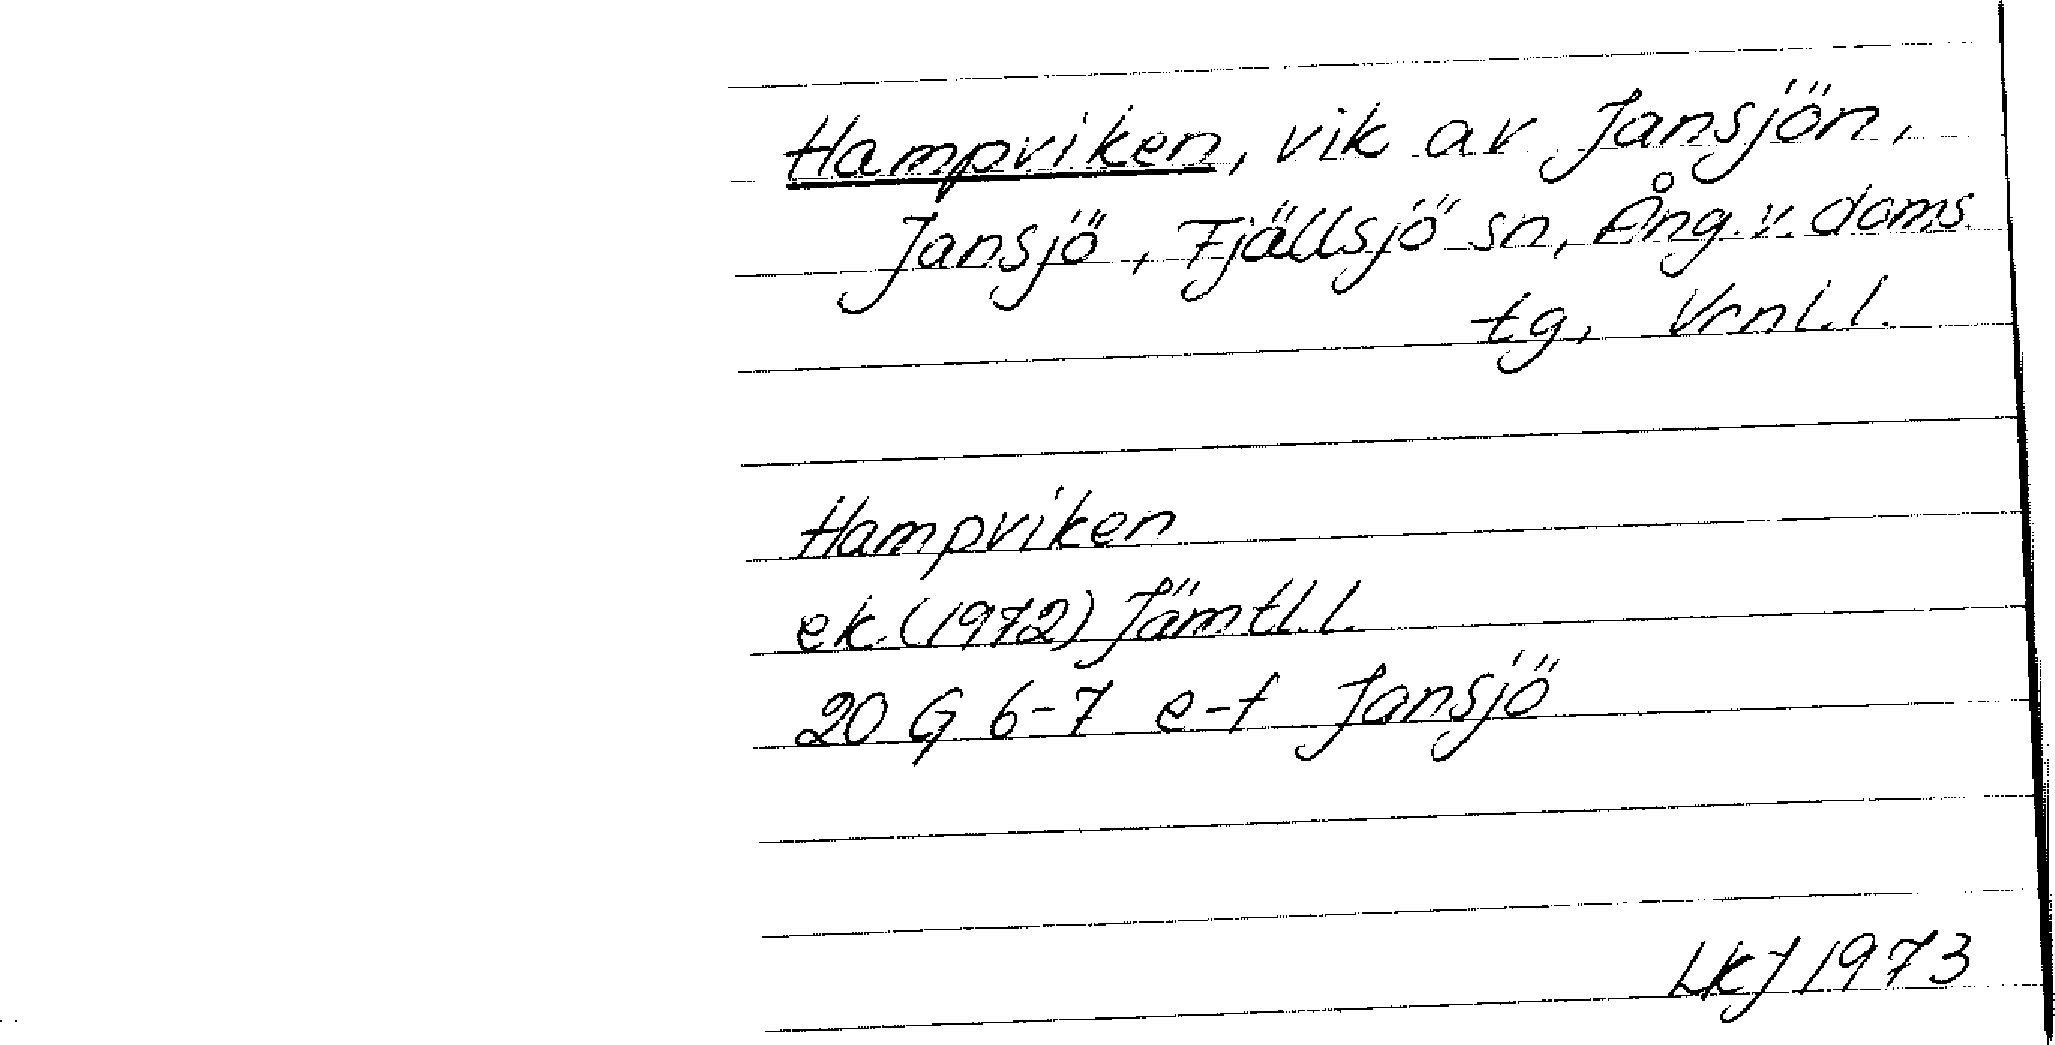 Hampviken, vik av Jansjön,
Jansjö, Fjällsjö sn, Ång. v. doms.
tg, Vrnl. l.
Hampviken
ek (1972) Jämtl. l.
20 G 6-7 e-f Jansjö
LKJ 1973